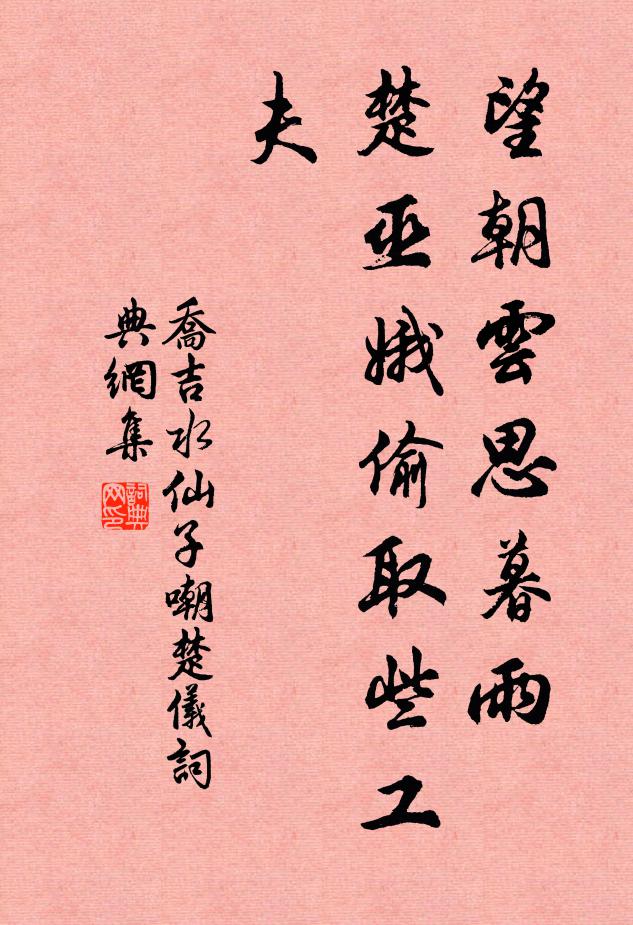 望朝雲思暮雨
楚巫娥偷取些工
夫
喬吉水仙子嘲楚儀詞
典網集
詞典網印